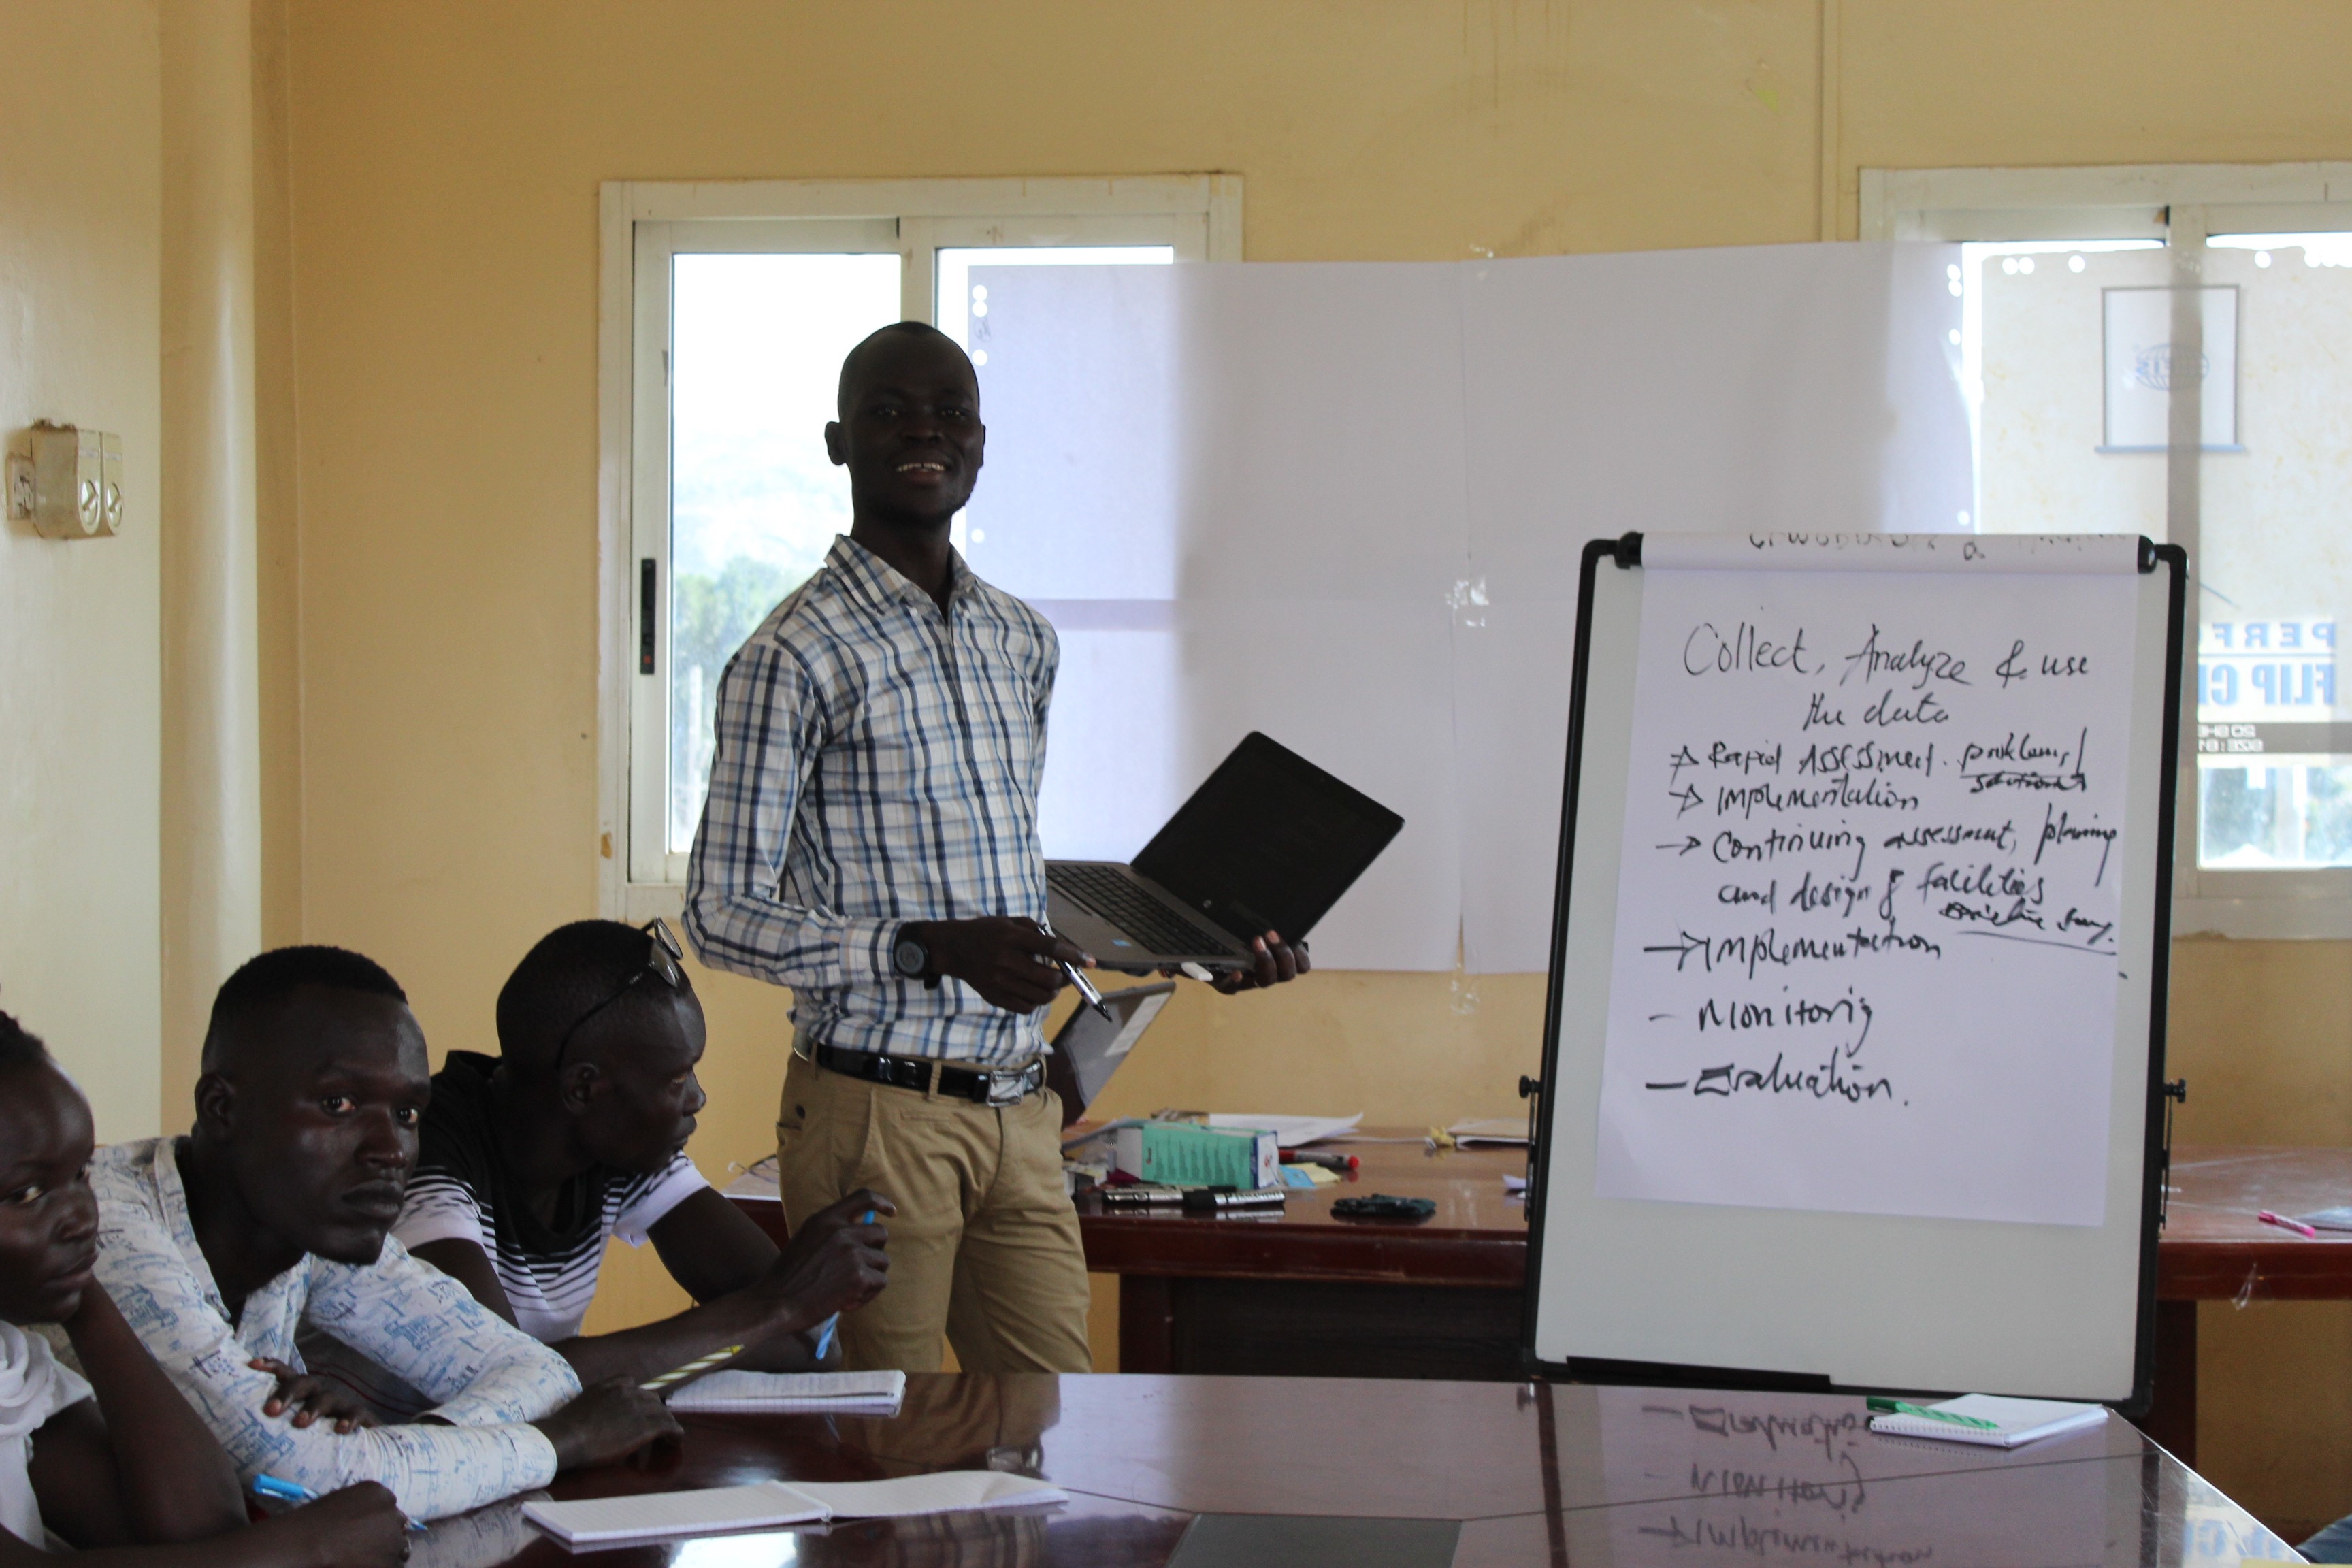 Collect, Analyze & use
the data
→ Rapid Assessment. problems/
solutions
→ Implementation
→ Continuing assessment, planning
and design of facilities
Baseline Survey.
→ Implementation
- Monitorig
- Evaluation.
PERF
FLIP C